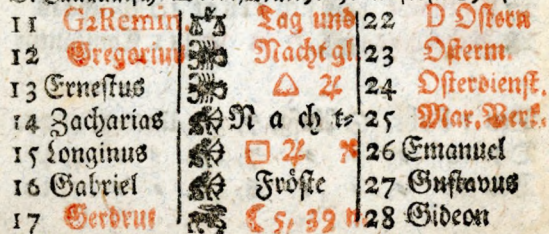 11 G2Remin Tag und 22 D Ostern
12 Gregorius Nacht gl. 23 Osterm.
13 Ernestus △ ♃ 24 Osterdienst.
14 Zacharias N a ch t- 25 Mar. Verk.
15 Longinus □ ♃ 26 Emanuel
16 Gabriel Fröste 27 Gustavus
17 Gerdrut ☾ 5, 39 n. 28 Gideon